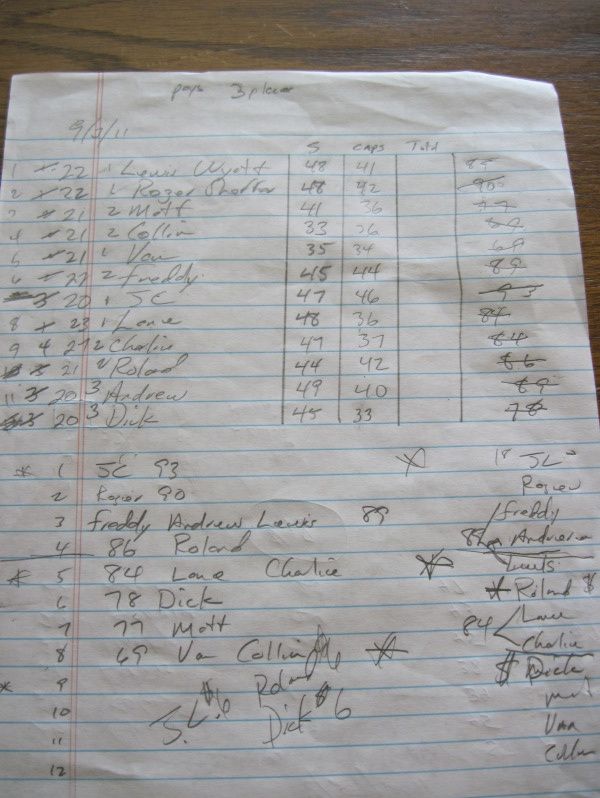 pays 3 places
S caps Total
1 22 1 Lewis Wyatt 48 41 85
2 22 1 Roger 48 42 90
21 2 Matt 41 36 77
4 21 2 Collin 33 36 69
5 21 1 Van 35 34 69
6 22 2 freddy 45 44 89
20 1 JC 47 46 93
8 23 1 Lane 48 36 84
9 4 27 2 Charlie 47 37 84
21 2 Roland 44 42 86
11 3 20 3 Andrew 49 40 89
20 3 Dick 45 33 78
* 1 JC 93
2 Roger 90
3 freddy Andrew Lewis 89
4 86 Roland
* 5 84 Lane Charlie
6 78 Dick
7 77 Matt
8 69 Van Collin
* 9 Roland
10 J.C. $6 Dick $6
11
12
JC
Roger
freddy
89 Andrew
Lewis
* Roland $
84 Lane
Charlie
$ Dick
Matt
Van
Collin